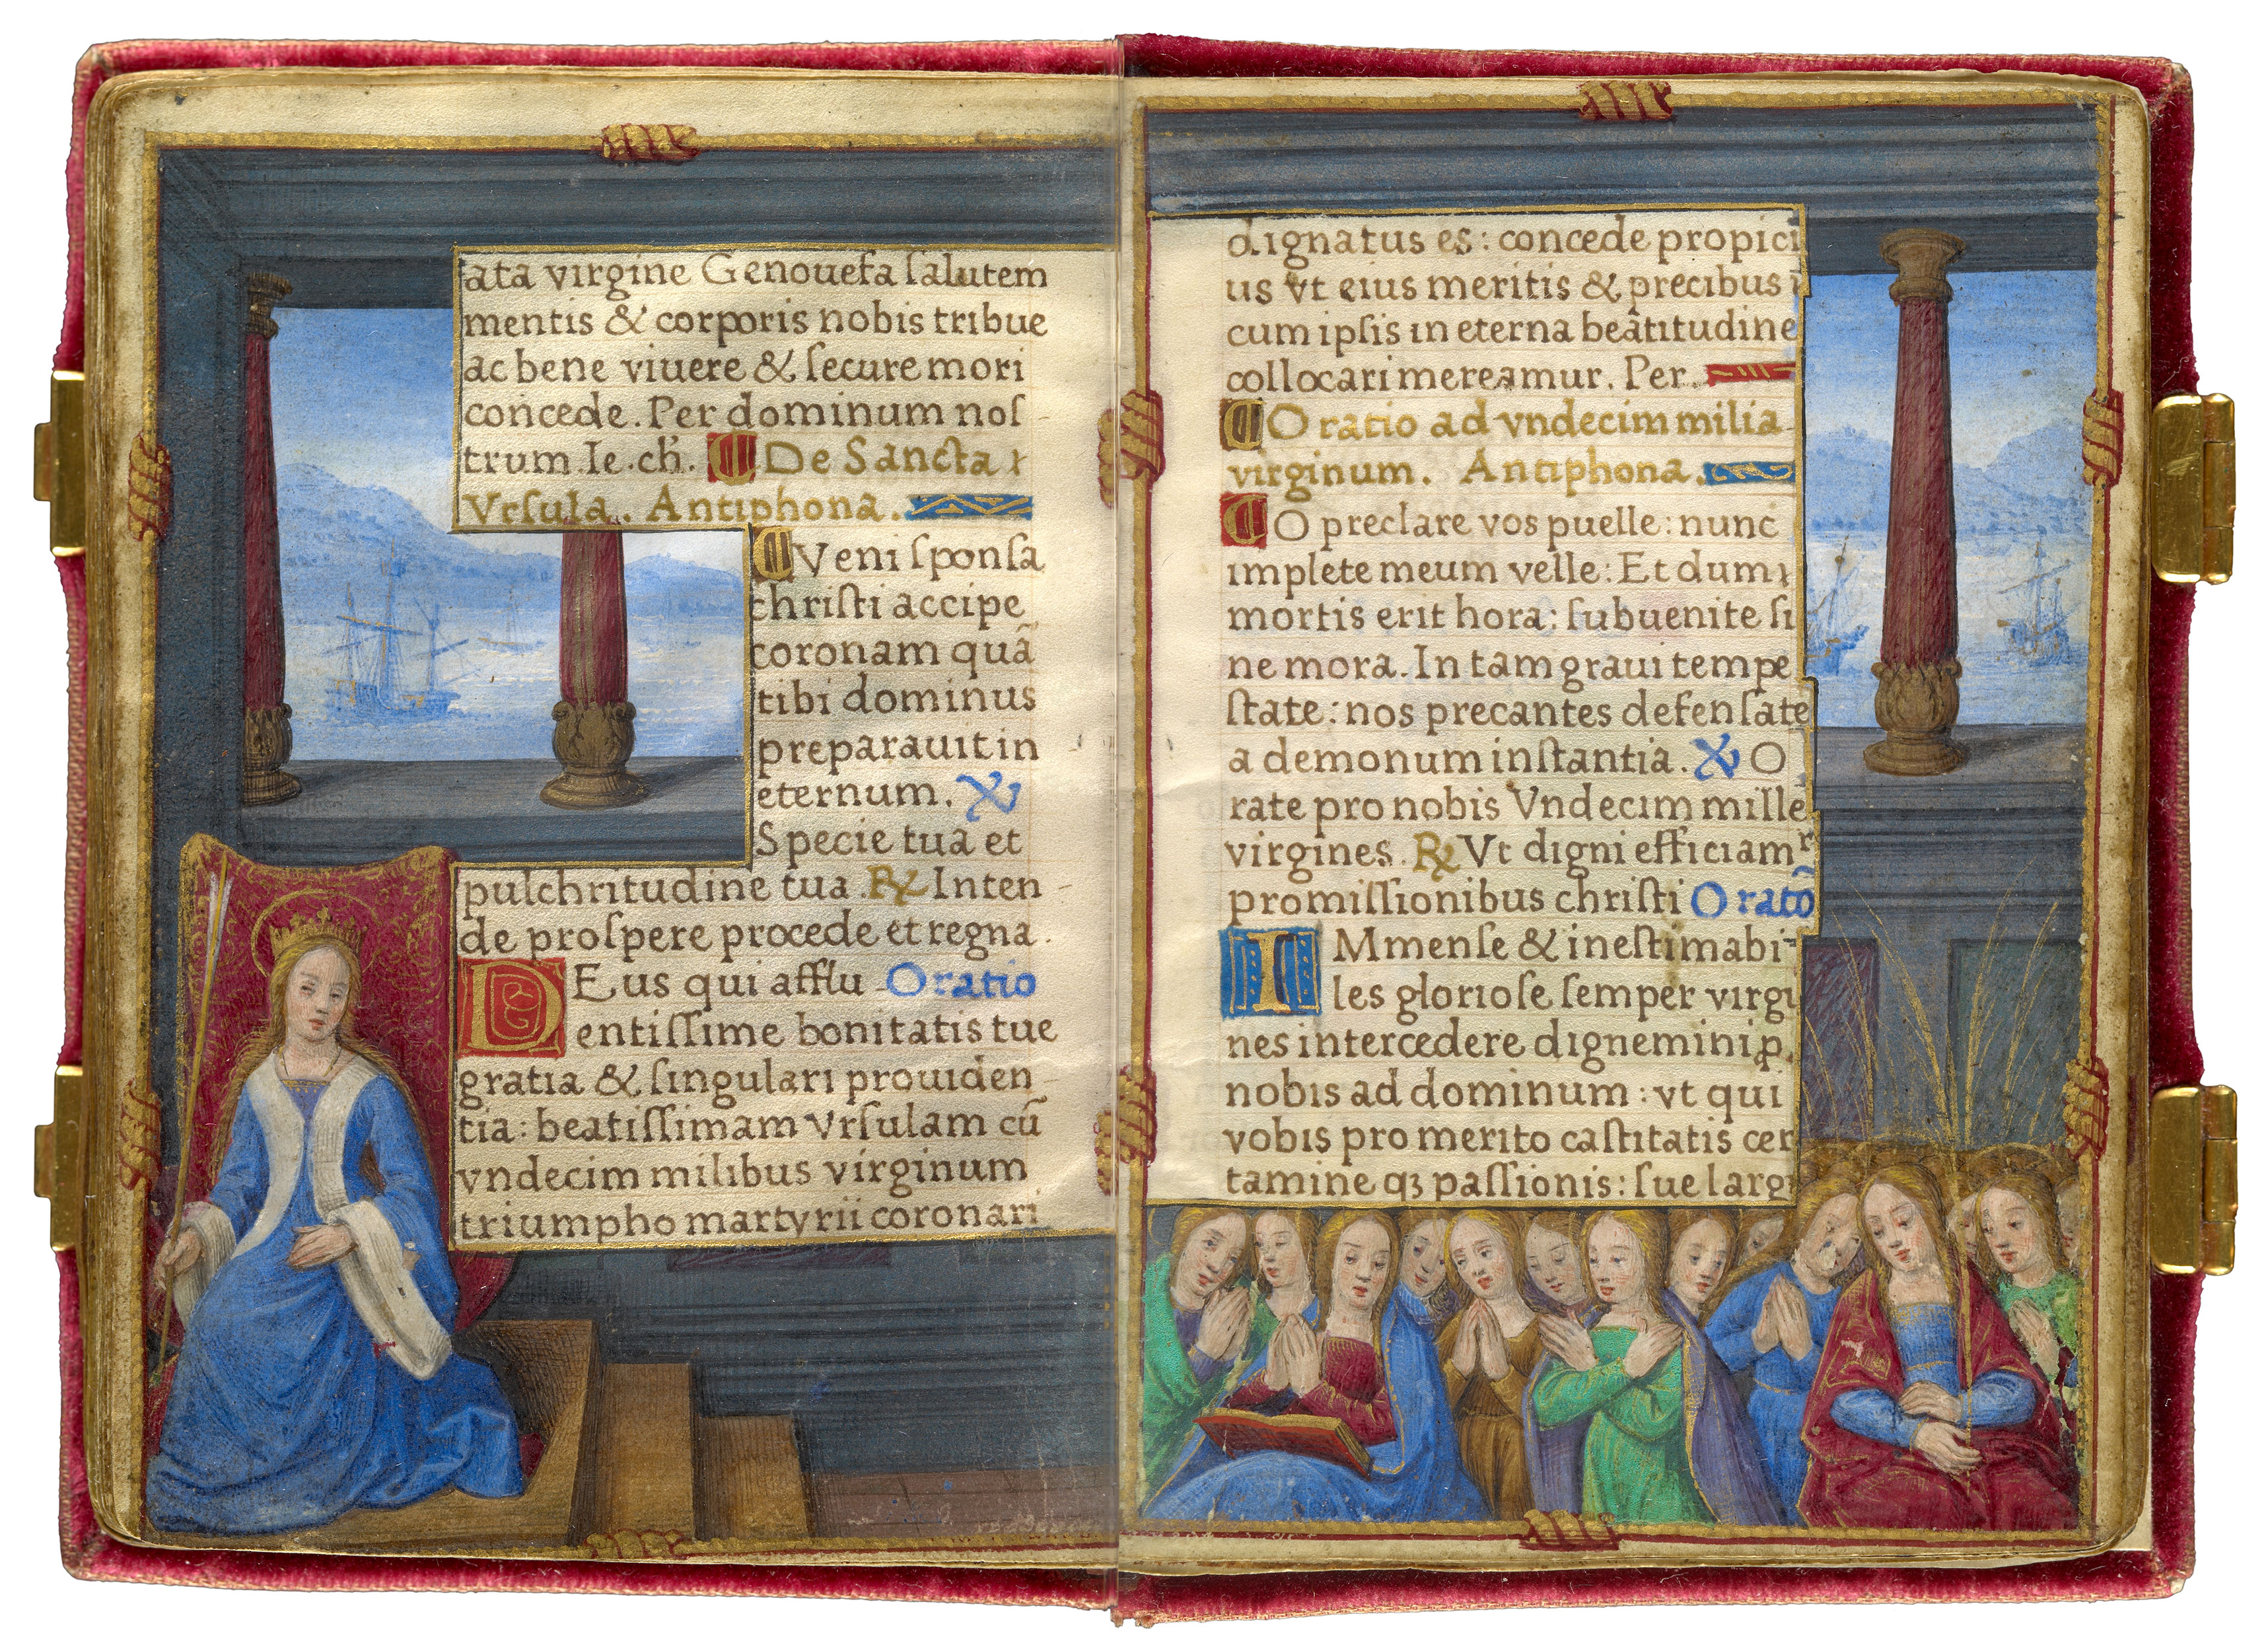 ata virgine Genouefa ſalutem
mentis & corporis nobis tribue
ac bene viuere & ſecure mori
concede. Per dominum noſ
trum Ie. ch̄. De Sancta
Vrſula. Antiphona.
Veni ſponſa
chriſti accipe
coronam quā
tibi dominus
preparauit in
eternum. ℣
Specie tua et
pulchritudine tua. ℟ Inten
de proſpere procede et regna.
DEus qui afflu Oratio
entiſſime bonitatis tue
gratia & ſingulari prouiden
tia: beatiſſimam vrſulam cū
vndecim milibus virginum
triumpho martyrii coronari
dignatus es: concede propici
us vt eius meritis & precibus
cum ipſis in eterna beatitudine
collocari mereamur. Per.
Oratio ad vndecim milia
virginum. Antiphona.
O preclare vos puelle: nunc
implete meum velle: Et dum
mortis erit hora: ſubuenite ſi
ne mora. In tam graui tempe
ſtate: nos precantes defenſate
a demonum inſtantia. ℣ O
rate pro nobis Vndecim mille
virgines. ℟ Vt digni efficiamʳ
promiſſionibus chriſti Oratō
IMmenſe & ineſtimabi-
les glorioſe ſemper virgi
nes intercedere dignemini ꝓ
nobis ad dominum: vt qui
vobis pro merito caſtitatis cer
tamine qꝫ paſſionis: ſue larg